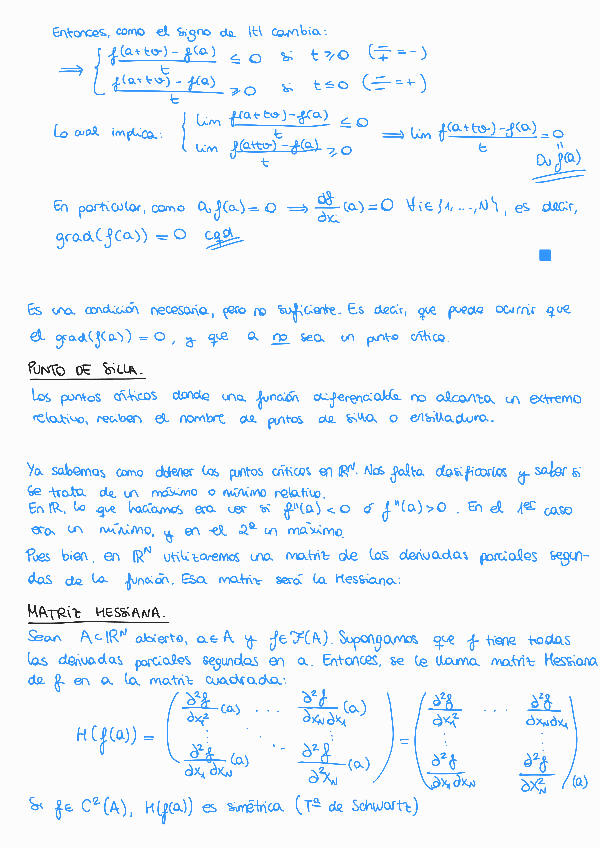 Entonces, como el signo de |t| cambia:
⟹ { (f(a+tv) - f(a))/t ≤ 0 si t ≥ 0 (-/+ = -)
(f(a+tv) - f(a))/t ≥ 0 si t ≤ 0 (-/- = +)
Lo cual implica: { lim (f(a+tv) - f(a))/t ≤ 0
lim (f(a+tv) - f(a))/t ≥ 0 ⟹ lim (f(a+tv) - f(a))/t = 0
" Dv f(a)
En particular, como Dv f(a) = 0 ⟹ ∂f/∂xi (a) = 0 ∀i ∈ {1, ..., N}, es decir,
grad(f(a)) = 0 cqd
Es una condición necesaria, pero no suficiente. Es decir, que puede ocurrir que
el grad(f(a)) = 0, y que a no sea un punto crítico.
PUNTO DE SILLA.
Los puntos críticos donde una función diferenciable no alcanza un extremo
relativo, reciben el nombre de puntos de silla o ensilladura.
Ya sabemos como obtener los puntos críticos en ℝᴺ. Nos falta clasificarlos y saber si
se trata de un máximo o mínimo relativo.
En ℝ, lo que hacíamos era ver si f''(a) < 0 ó f''(a) > 0. En el 1er caso
era un mínimo, y en el 2º un máximo.
Pues bien, en ℝᴺ utilizaremos una matriz de las derivadas parciales segun-
das de la función. Esa matriz será la Hessiana:
MATRIZ HESSIANA.
Sean A⊂ℝᴺ abierto, a∈A y f∈ℱ(A). Supongamos que f tiene todas
las derivadas parciales segundas en a. Entonces, se le llama matriz Hessiana
de f en a la matriz cuadrada:
H(f(a)) = ( ∂²f/∂x₁² (a) ... ∂²f/∂xN∂x₁ (a) ⋮ ⋱ ⋮ ∂²f/∂x₁∂xN (a) ∂²f/∂²xN (a) ) = ( ∂²f/∂x₁² ... ∂²f/∂xN∂x₁ ⋮ ⋮ ∂²f/∂x₁∂xN ∂²f/∂x²N )(a)
Si f∈C²(A), H(f(a)) es simétrica (Tª de Schwartz)